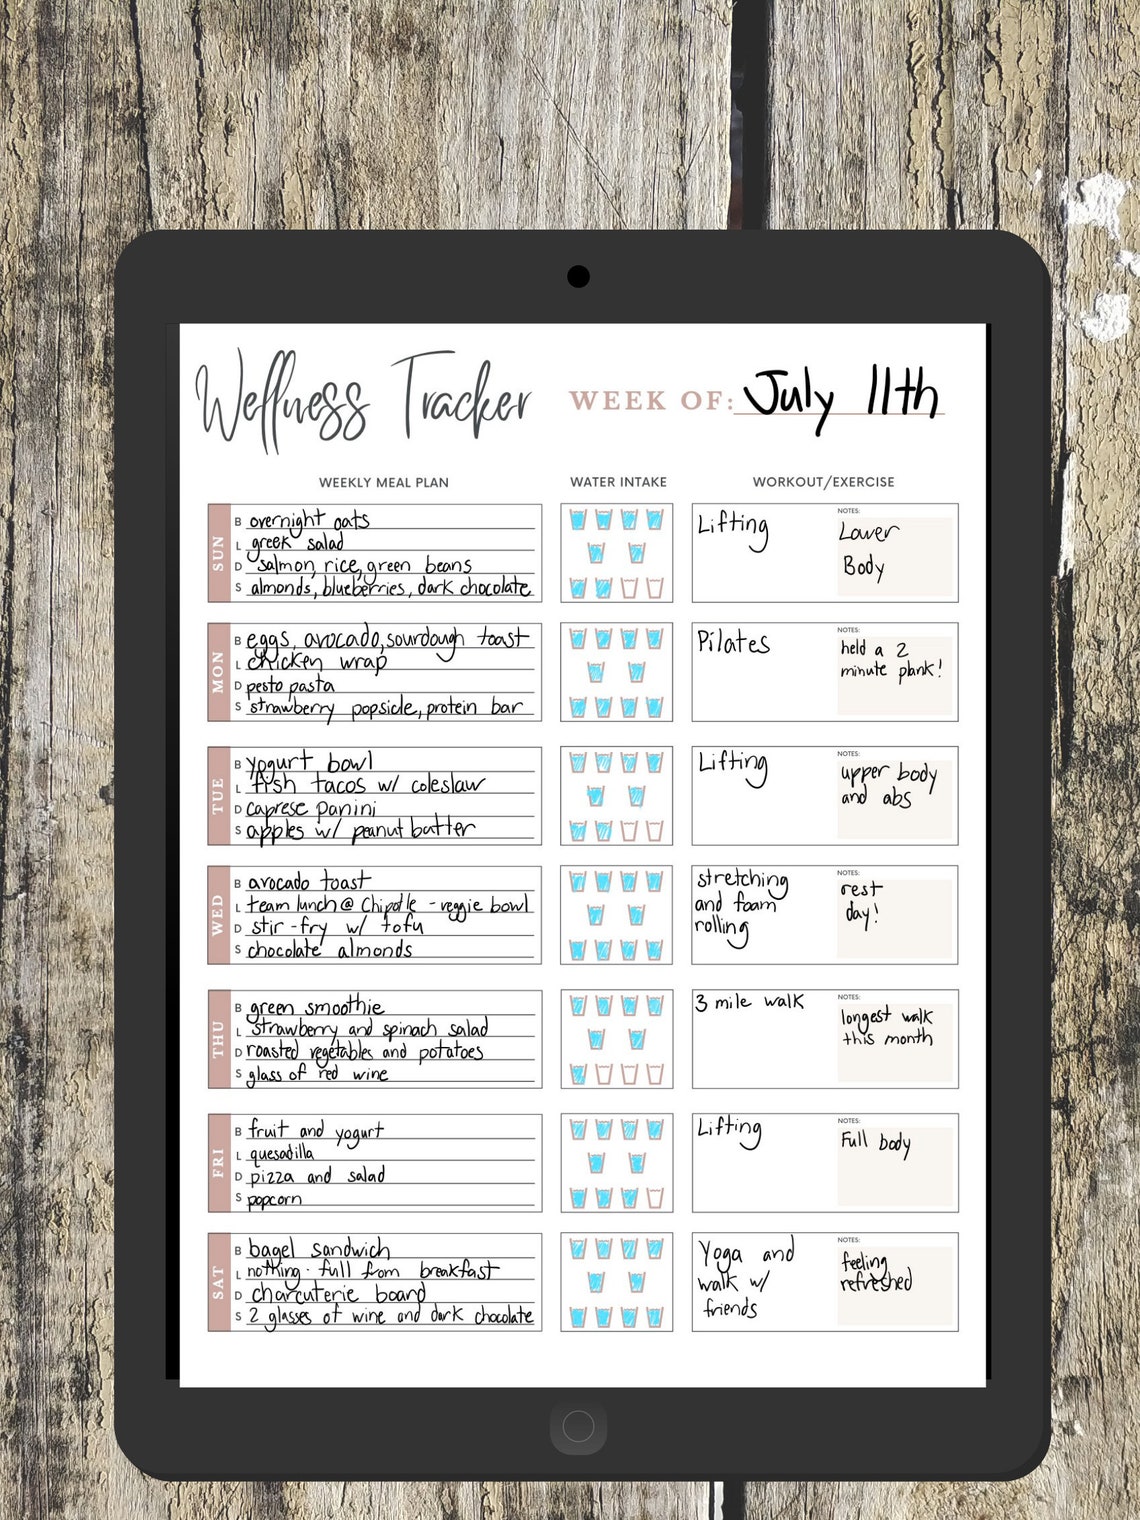 Wellness Tracker WEEK OF: July 11th
WEEKLY MEAL PLAN WATER INTAKE WORKOUT/EXERCISE
SUN
B overnight oats
L greek salad
D salmon, rice, green beans
S almonds, blueberries, dark chocolate
Lifting
NOTES:
Lower
Body
MON
B eggs, avocado, sourdough toast
L chicken wrap
D pesto pasta
S strawberry popsicle, protein bar
Pilates
NOTES:
held a 2
minute plank!
TUE
B yogurt bowl
L fish tacos w/ coleslaw
D caprese panini
S apples w/ peanut butter
Lifting
NOTES:
upper body
and abs
WED
B avocado toast
L team lunch @ Chipotle - veggie bowl
D stir-fry w/ tofu
S chocolate almonds
stretching
and foam
rolling
NOTES:
rest
day!
THU
B green smoothie
L strawberry and spinach salad
D roasted vegetables and potatoes
S glass of red wine
3 mile walk
NOTES:
longest walk
this month
FRI
B fruit and yogurt
L quesadilla
D pizza and salad
S popcorn
Lifting
NOTES:
Full body
SAT
B bagel sandwich
L nothing. full from breakfast
D charcuterie board
S 2 glasses of wine and dark chocolate
Yoga and
walk w/
friends
NOTES:
feeling
refreshed